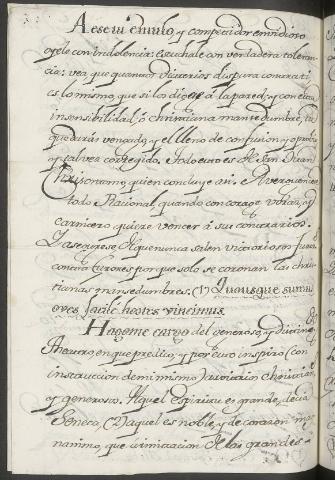 A ese tu emulo, y competidor envidioso
oyelo con indolencia: escuchale con verdadera toleran
cia: vea que quantos dicterios dispara contra ti
es lo mismo, que si los dice á la pared, y con esta
insensibilidad, ó christiana mansedumbre, tu
quedarás vengado, y el lleno de confusion, y oprobrio
y tal vez corregido. Todo esto es de San Juan
Chrisostomo, quien concluye asi. Averguencese
todo Racional, quando con corage voraz, y
carnicero quiere vencer á sus contrarios.
Y asegurese que nunca salen victoriosos furores
contra furores porque solo se coronan las chris
tianas mansedumbres. (1) Quousque sumus
oves, facile hostes vincimus.
Hagome cargo del veneroso, y
en que predico, y por esto inspiro (con
instruccion de mi mismo)
y generoso. Aquel Espiritu es grande, decia
Seneca, (2) aquel es noble, y de corazon mag
nanimo, que á imitacion de los grandes